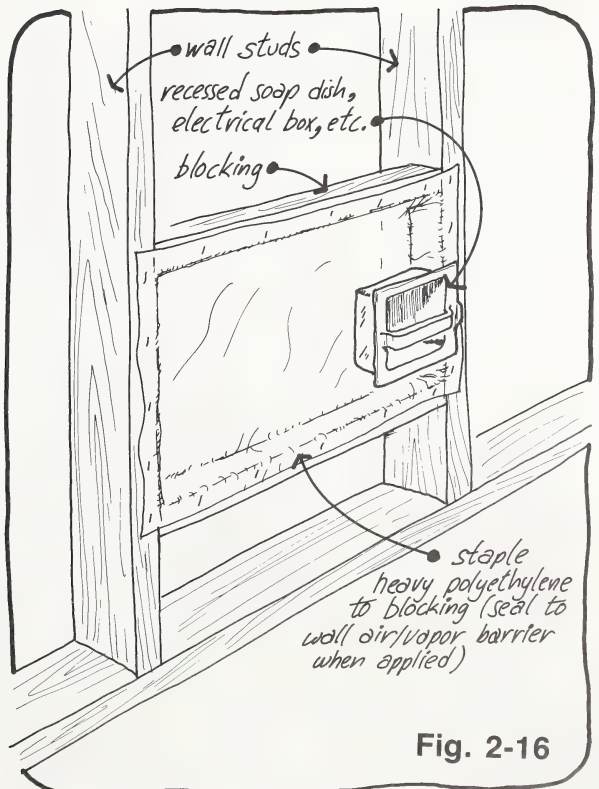 wall studs
recessed soap dish,
electrical box, etc.
blocking
staple
heavy polyethylene
to blocking (seal to
wall air/vapor barrier
when applied)
Fig. 2-16